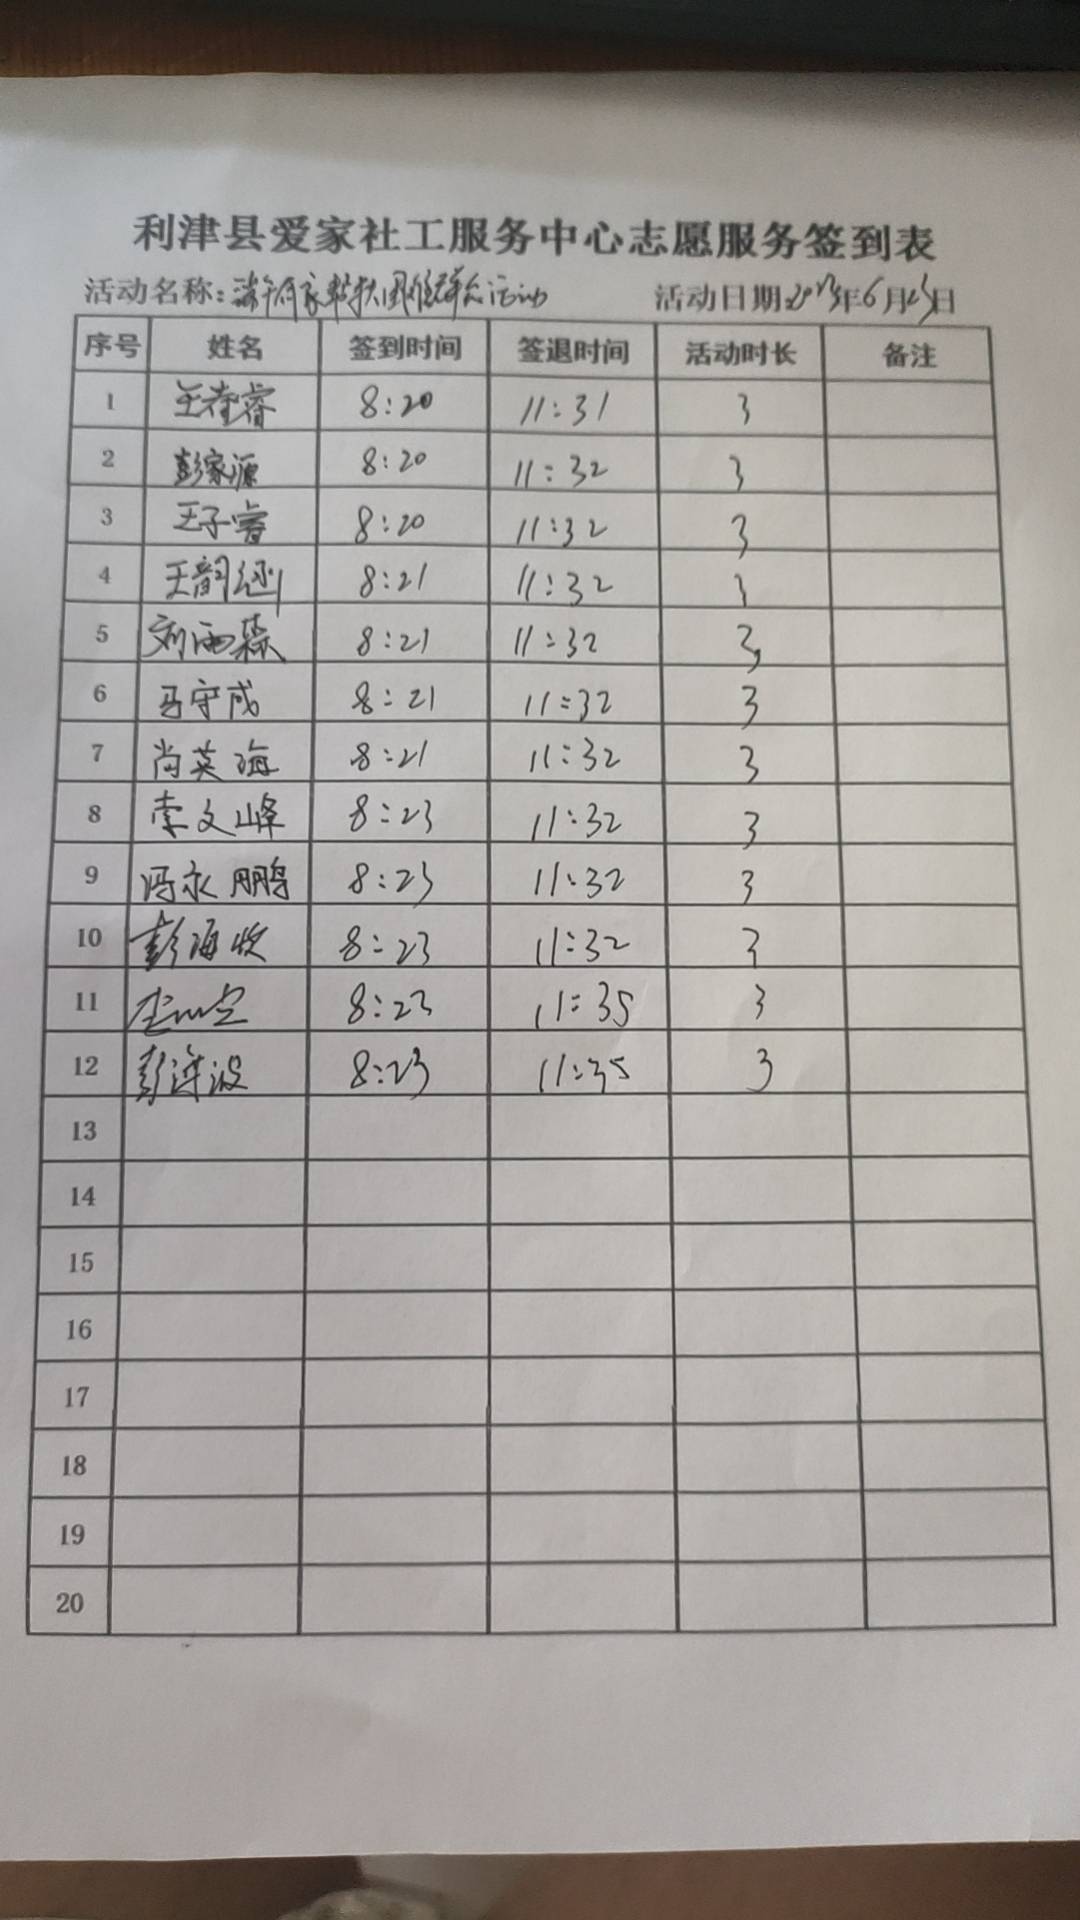 利津县爱家社工服务中心志愿服务签到表
活动名称: 活动 活动日期:2023年6月23日
序号 姓名 签到时间 签退时间 活动时长 备注
1 8:20 11:31 3
2 彭家源 8:20 11:32 3
3 王子睿 8:20 11:32 3
4 王韵 8:21 11:32 3
5 刘雨霖 8:21 11:32 3
6 马守成 8:21 11:32 3
7 尚英海 8:21 11:32 3
8 李文峰 8:23 11:32 3
9 冯永鹏 8:23 11:32 3
10 彭海牧 8:23 11:32 3
11 8:23 11:35 3
12 彭连波 8:23 11:35 3
13
14
15
16
17
18
19
20